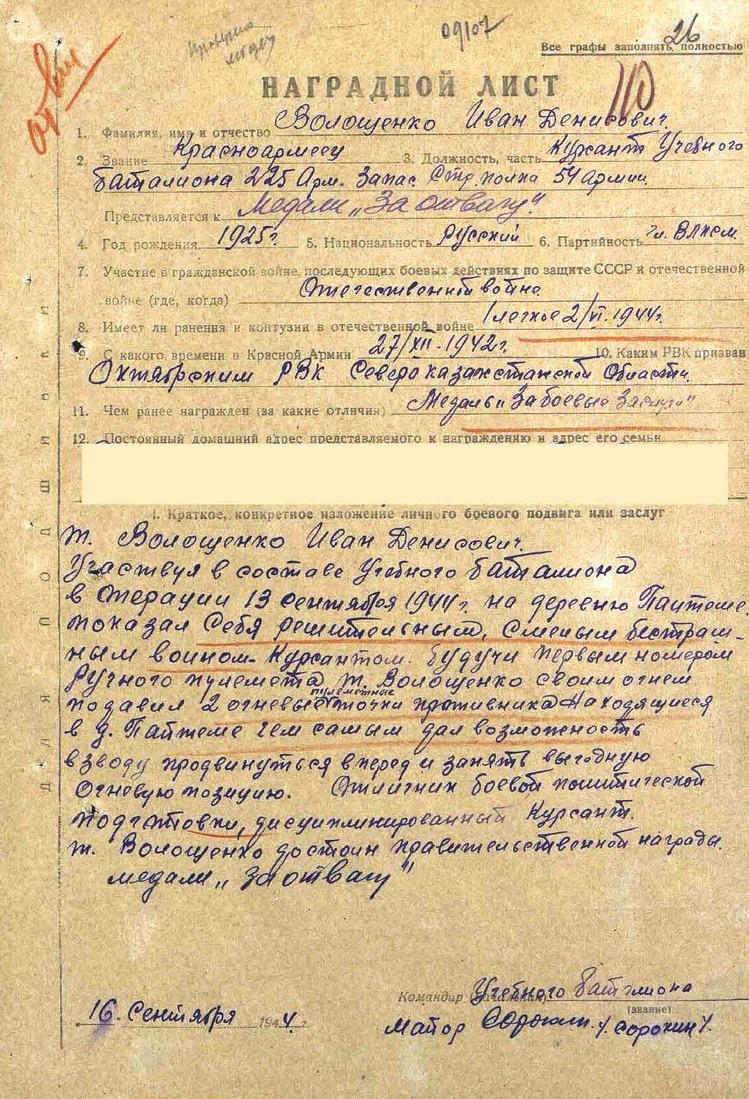 09107
26
Все графы заполнять полностью
отваги
НАГРАДНОЙ ЛИСТ
110
1. Фамилия, имя и отчество Волощенко Иван Денисович
2. Звание Красноармеец 3. Должность, часть Курсант Учебного
баталиона 225 Арм. Запас. Стр. полка 54 армии.
Представляется к Медали „За отвагу".
4. Год рождения 1925г. 5. Национальность Русский 6. Партийность чл. ВЛКСМ.
7 Участие в гражданской войне, последующих боевых действиях по защите СССР и отечественной
войне (где, когда) Отечественной война
8. Имеет ли ранения и контузии в отечественной войне 1 легкое 2/VI.1944г.
9. С какого времени в Красной Армии 27/XII-1942г. 10. Каким РВК призван
Октябрским РВК Северо казахстанской Области.
11. Чем ранее награжден (за какие отличия) Медаль „За боевые Заслуги"
12. Постоянный домашний адрес представляемого к награждению и адрес его семьи
I. Краткое, конкретное изложение личного боевого подвига или заслуг
т. Волощенко Иван Денисович.
Участвуя в составе Учебного баталиона
в операции 13 сентября 1944г. на деревню Пайтеме
показал Себя решительным, смелым бестраш-
ным воином-Курсантом. будучи первым номером
Ручного пулемета т. Волощенко своим огнем
пулеметные
подавил 2 огневые точки противника Находящиеся
в д. Пайтеме чем самым дал возможность
взводу продвинуться вперед и занять выгодную
огневую позицию. Отличник боевой политической
подготовки, дисциплинированный Курсант.
т. Волощенко достоин правительственной награды.
медали „За отвагу"
Для подшивки
Командир (начальник) Учебного батглиона
(звание)
16. Сентября 1944г.
Майор Сорокин. /Сорокин/.